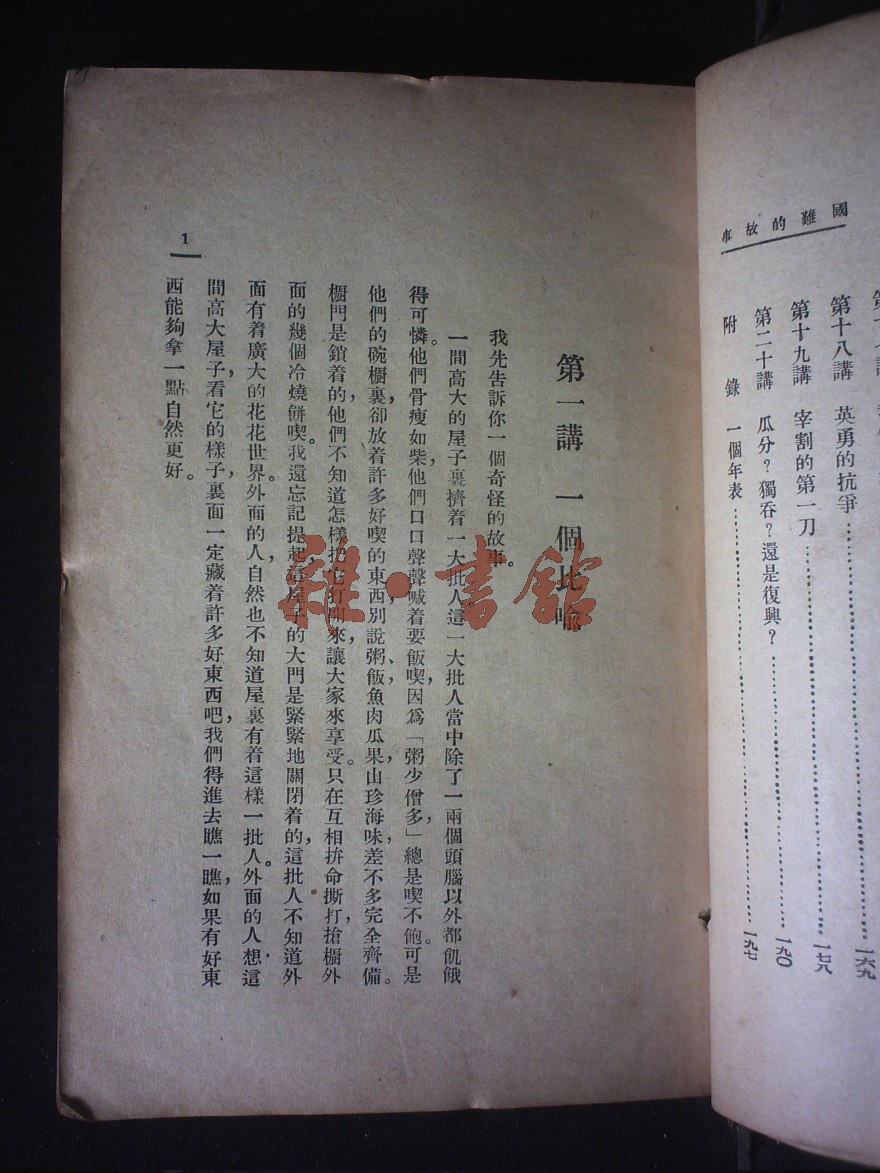 國難的故事
第十八講 英勇的抗爭……一六九
第十九講 宰割的第一刀……一七八
第二十講 瓜分？獨吞？還是復興？……一九〇
附錄 一個年表……一九七
第一講 一個比喻
我先告訴你一個奇怪的故事。
一間高大的屋子裏擠着一大批人，這一大批人當中除了一兩個頭腦以外都飢餓
得可憐。他們骨瘦如柴，他們口口聲聲喊着要飯喫，因爲「粥少僧多」，總是喫不飽。可是
他們的碗櫥裏，卻放着許多好喫的東西，別說粥、飯，魚肉瓜果，山珍海味，差不多完全齊備。
櫥門是鎖着的，他們不知道怎樣把它打開來，讓大家來享受。只在互相拚命撕打，搶櫥外
面的幾個冷燒餅喫。我還忘記提起，這屋子的大門是緊緊地關閉着的，這批人不知道外
面有着廣大的花花世界。外面的人，自然也不知道屋裏有着這樣一批人。外面的人想，這
間高大屋子，看它的樣子，裏面一定藏着許多好東西吧，我們得進去瞧一瞧，如果有好東
西能夠拿一點，自然更好。
1
雜·書館